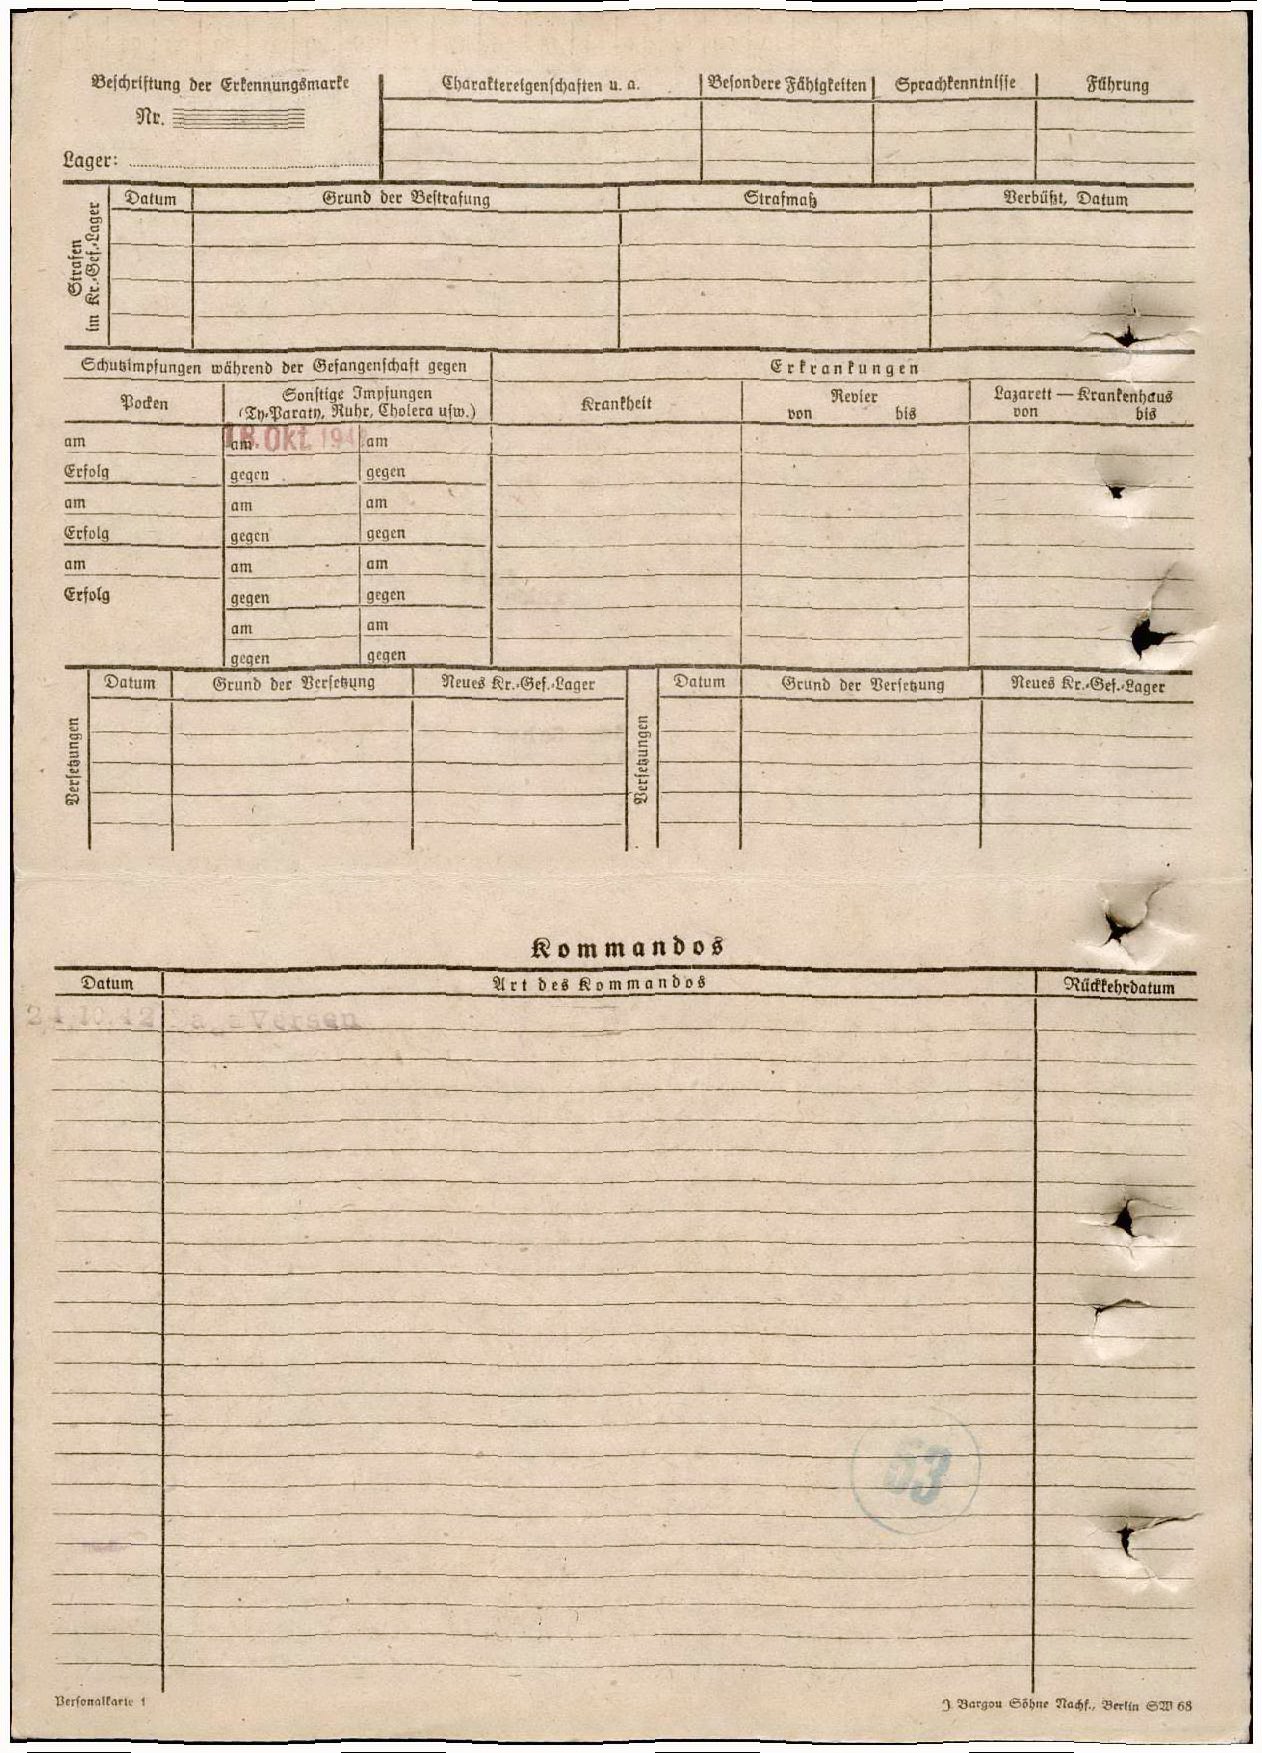 Beschriftung der Erkennungsmarke
Nr.
Lager:
Charaktereigenschaften u. a.
Besondere Fähigkeiten
Sprachkenntnisse
Führung
Strafen
im Kr.-Gef.-Lager
Datum
Grund der Bestrafung
Strafmaß
Verbüßt, Datum
Schutzimpfungen während der Gefangenschaft gegen
Erkrankungen
Pocken
Sonstige Impfungen
(Ty.-Paraty, Ruhr, Cholera usw.)
Krankheit
Revier
von bis
Lazarett — Krankenhaus
von bis
am am am
18. Okt. 194
Erfolg gegen gegen
am am am
Erfolg gegen gegen
am am am
Erfolg gegen gegen
am am
gegen gegen
Versetzungen
Datum
Grund der Versetzung
Neues Kr.-Gef.-Lager
Versetzungen
Datum
Grund der Versetzung
Neues Kr.-Gef.-Lager
Kommandos
Datum
Art des Kommandos
Rückkehrdatum
Versen
63
Personalkarte 1
J. Bargou Söhne Nachf., Berlin SW 68